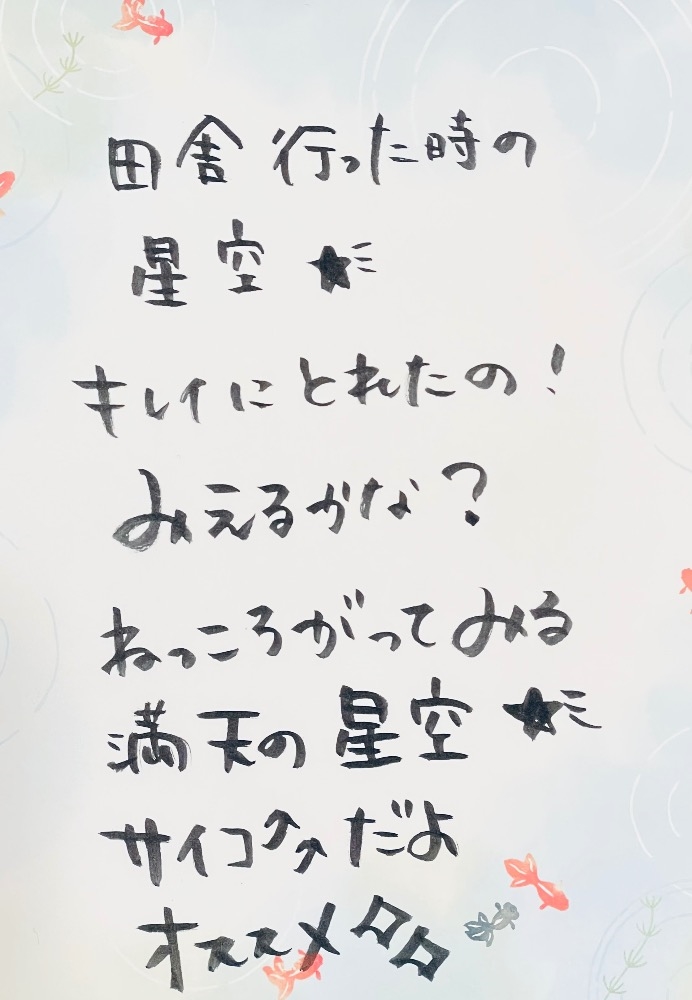 田舎行った時の
星空★彡
キレイにとれたの!
みえるかな?
ねっころがってみる
満天の星空★彡
サイコ⤴⤴だよ
オススメロロ